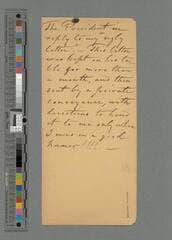 The President in
reply to my reply
letter". — This letter
was kept on his ta-
ble for more than
a month, and then
sent by a private
conveyance, with
directions to hand
it to me only when
I was in a good
humor !!!! —